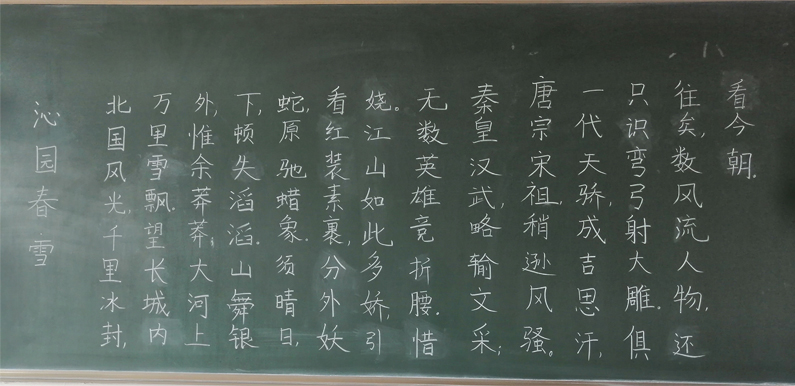 沁园春雪
北国风光,千里冰封,
万里雪飘.望长城内
外,惟余莽莽;大河上
下,顿失滔滔.山舞银
蛇,原驰蜡象.须晴日,
看红装素裹,分外妖
娆。江山如此多娇,引
无数英雄竞折腰.惜
秦皇汉武,略输文采;
唐宗宋祖,稍逊风骚。
一代天骄,成吉思汗,
只识弯弓射大雕.俱
往矣,数风流人物,还
看今朝.